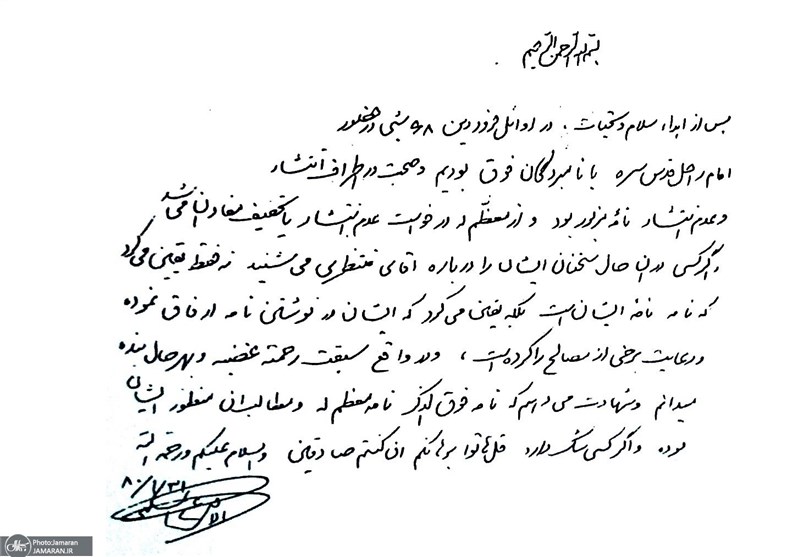 بسم الله الرحمن الرحیم
پس از اهداء سلام و تحیات، در اوائل فروردین ۶۸ شبی در حضور
امام راحل قدس سره با نامبردگان فوق بودیم و صحبت در اطراف انتشار
و عدم انتشار نامه مزبور بود و از معظم له درخواست عدم انتشار یا تخفیف مفاد آن می شد
و اگر کسی در آن حال سخنان ایشان را درباره آقای منتظری می شنید نه فقط یقین می کرد
که نامه نامه ایشان است بلکه یقین می کرد که ایشان در نوشتن نامه ارفاق نموده
و رعایت برخی از مصالح را کرده است، و در واقع سبقت رحمته غضبه و بهر حال بنده
میدانم و شهادت می دهم که نامه فوق الذکر نامه معظم له و مطالب آن منظور ایشان
بوده و اگر کسی شک دارد قل هاتوا برهانکم ان کنتم صادقین والسلام علیکم و رحمة الله
۸۰/۱/۳۱
Photo:Jamaran
JAMARAN.IR